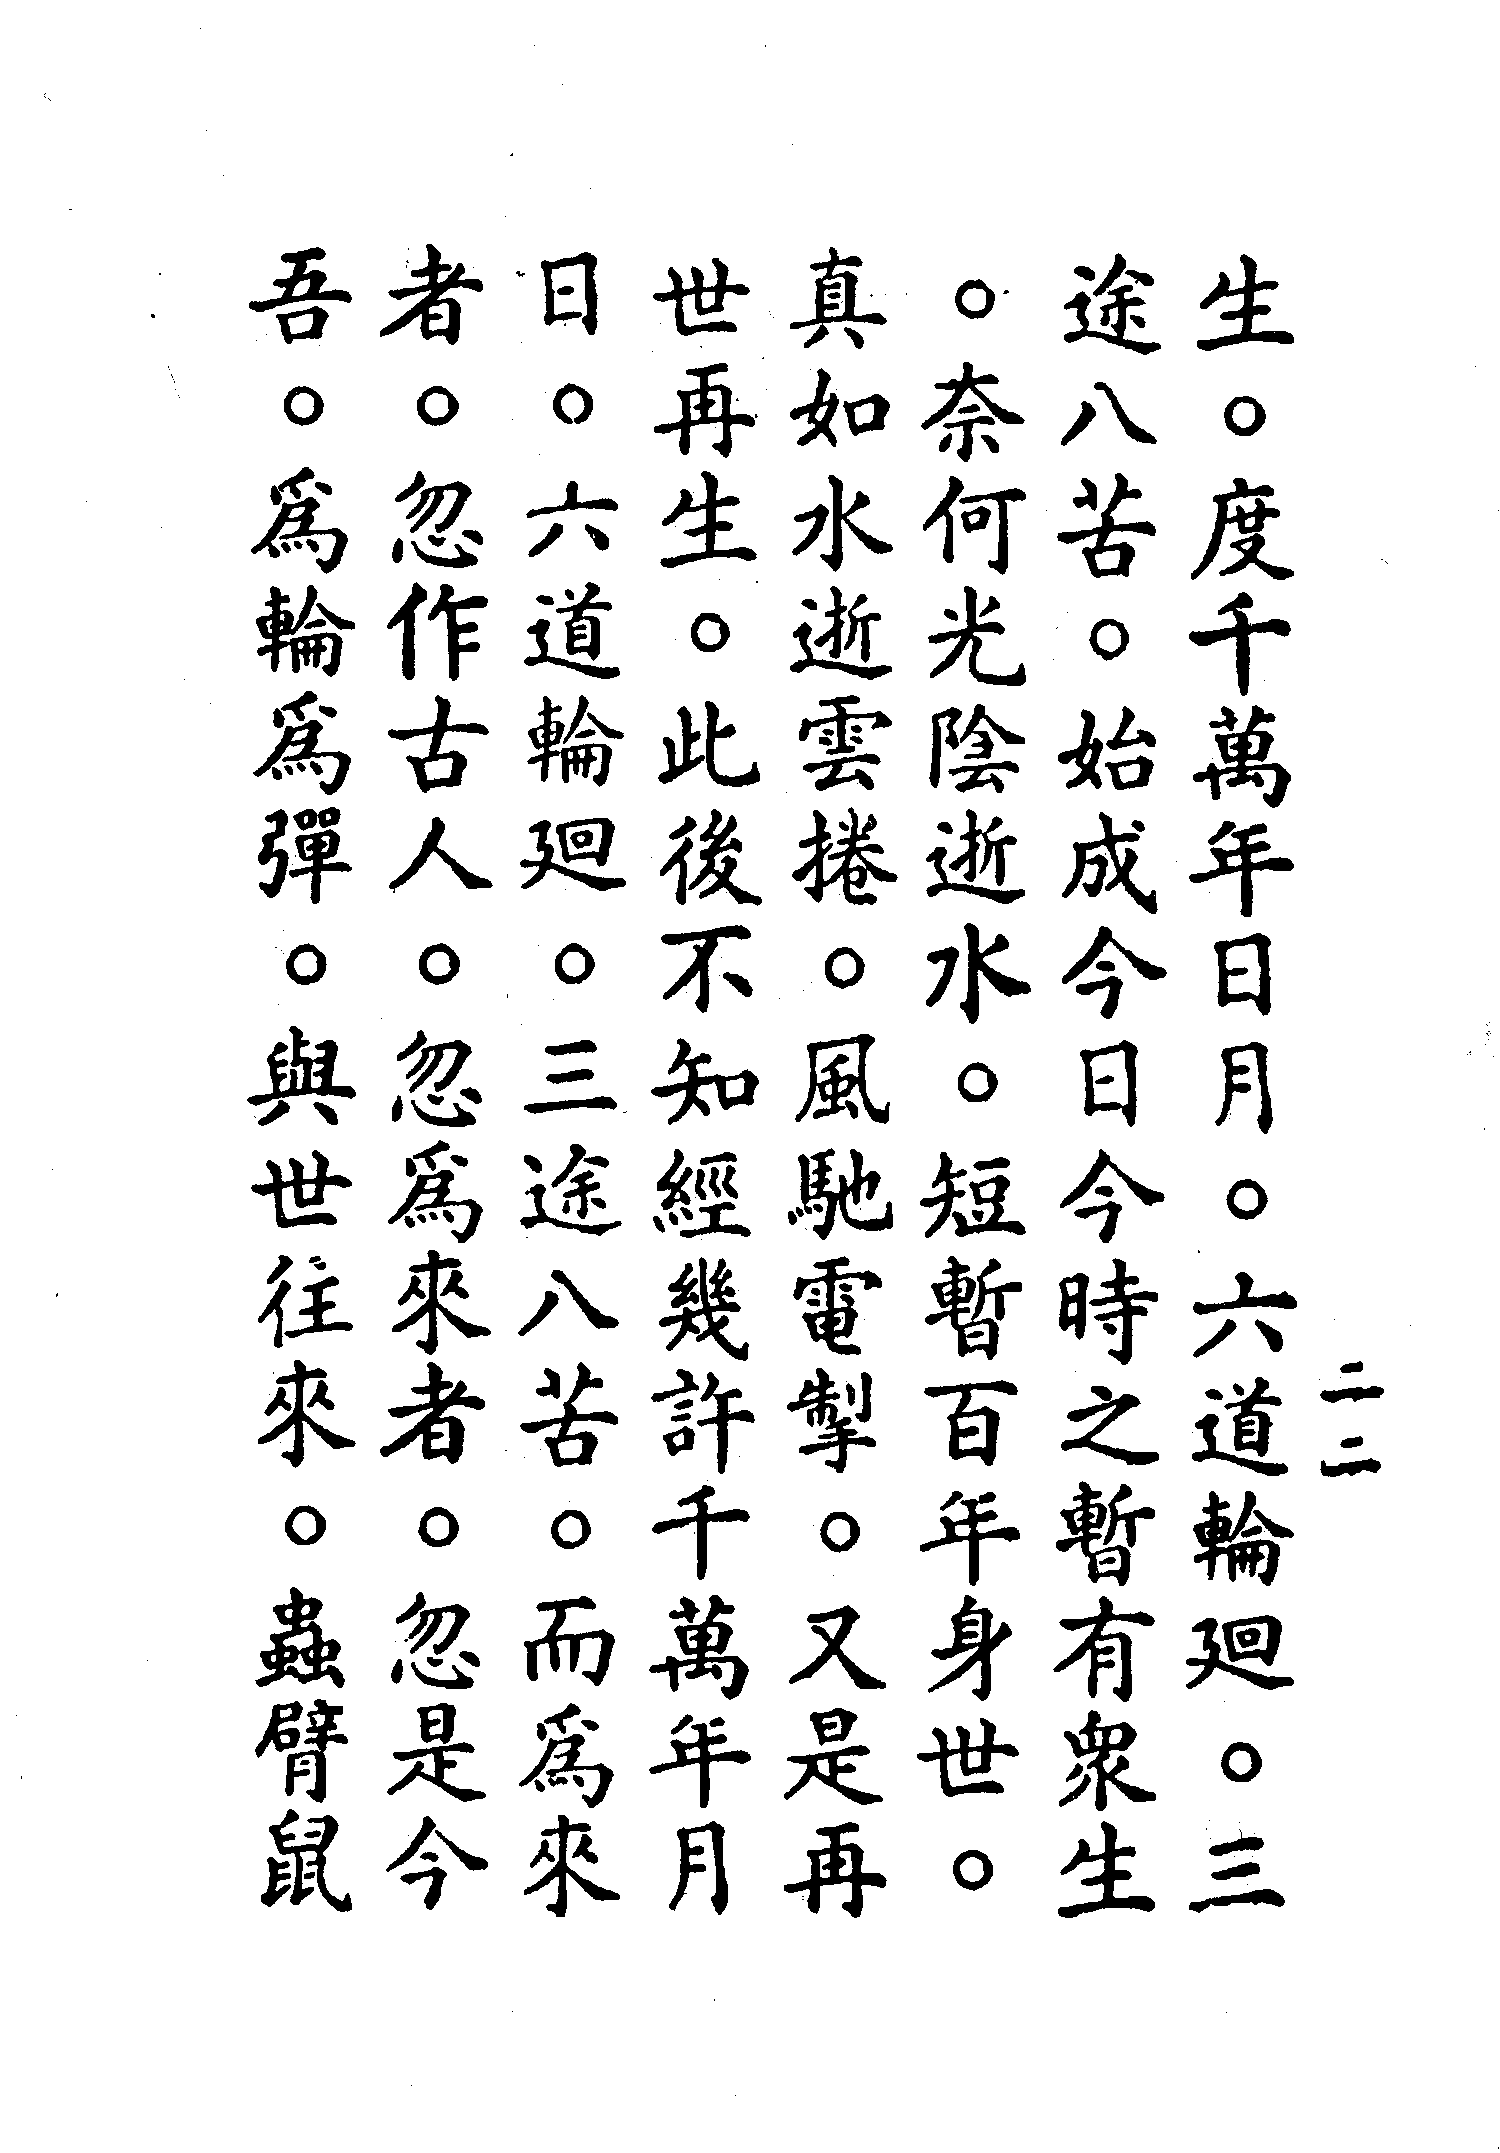 二二
生。度千萬年日月。六道輪廻。三
途八苦。始成今日今時之暫有衆生
。奈何光陰逝水。短暫百年身世。
真如水逝雲捲。風馳電掣。又是再
世再生。此後不知經幾許千萬年月
日。六道輪廻。三途八苦。而爲來
者。忽作古人。忽爲來者。忽是今
吾。爲輪爲彈。與世往來。蟲臂鼠